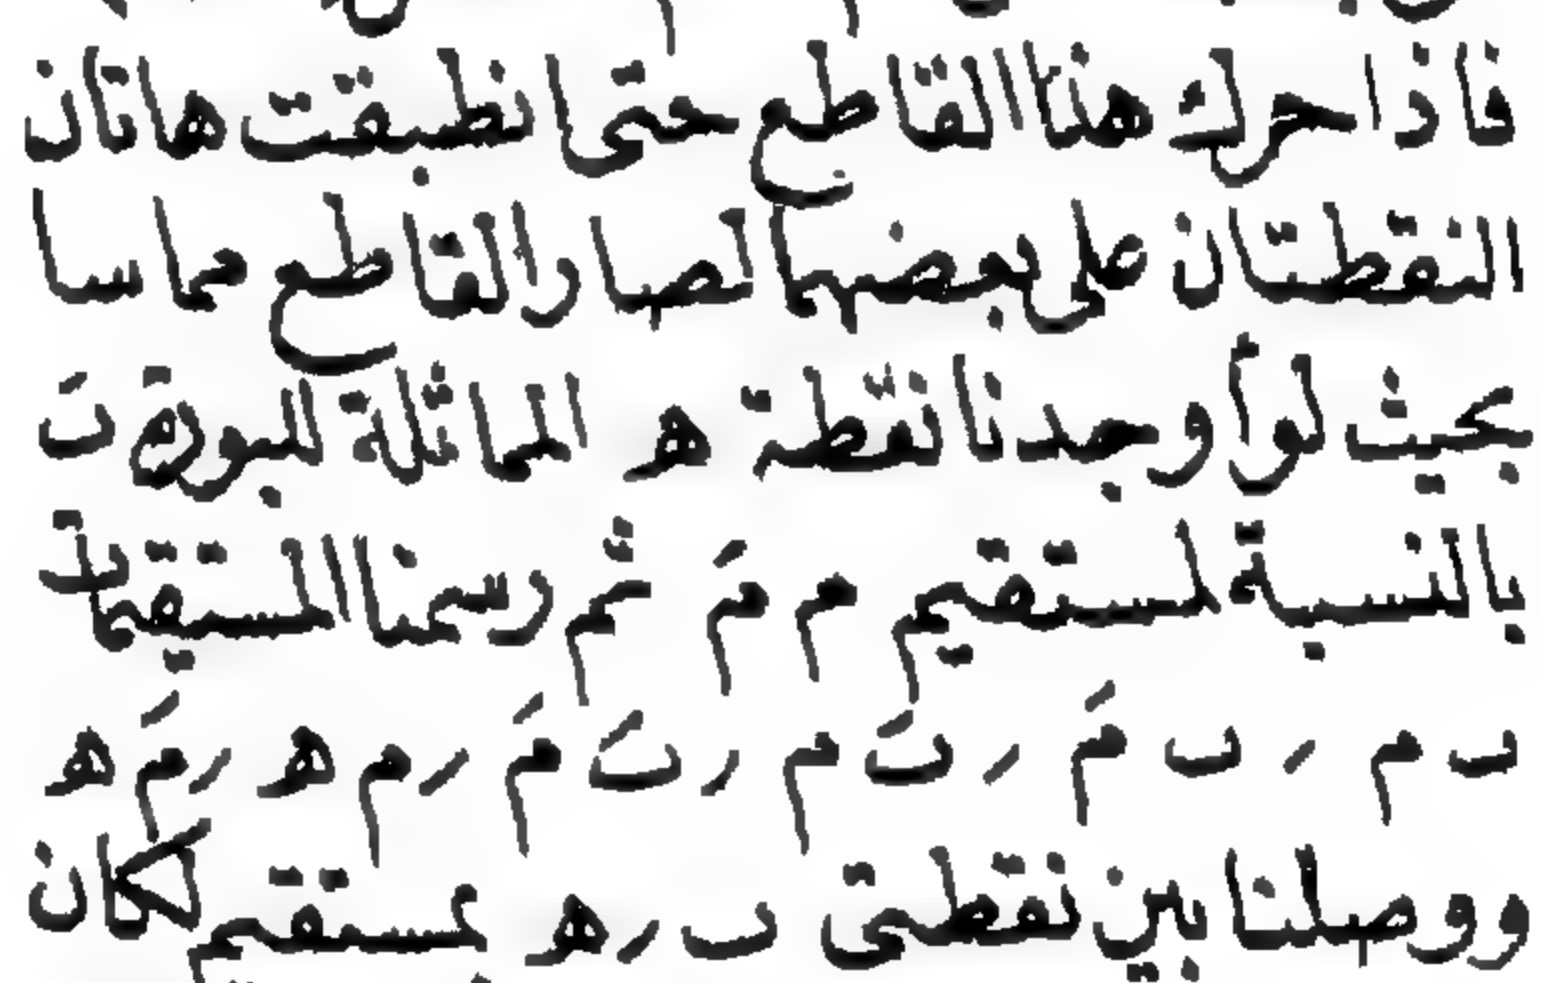 فاذا حرك هذا القاطع حتى انطبقت هاتان
النقطتان على بعضهما لصار القاطع مماسا
بحيث لو أوجدنا نقطة ه المماثلة للبورة بَ
بالنسبة لمستقيم م مَ ثم رسمنا المستقيمات
ب م ر ب مَ ر بَ م ر بَ مَ ر م ه ر مَ ه
ووصلنا بين نقطتى ب ر ه بمستقيم لكان